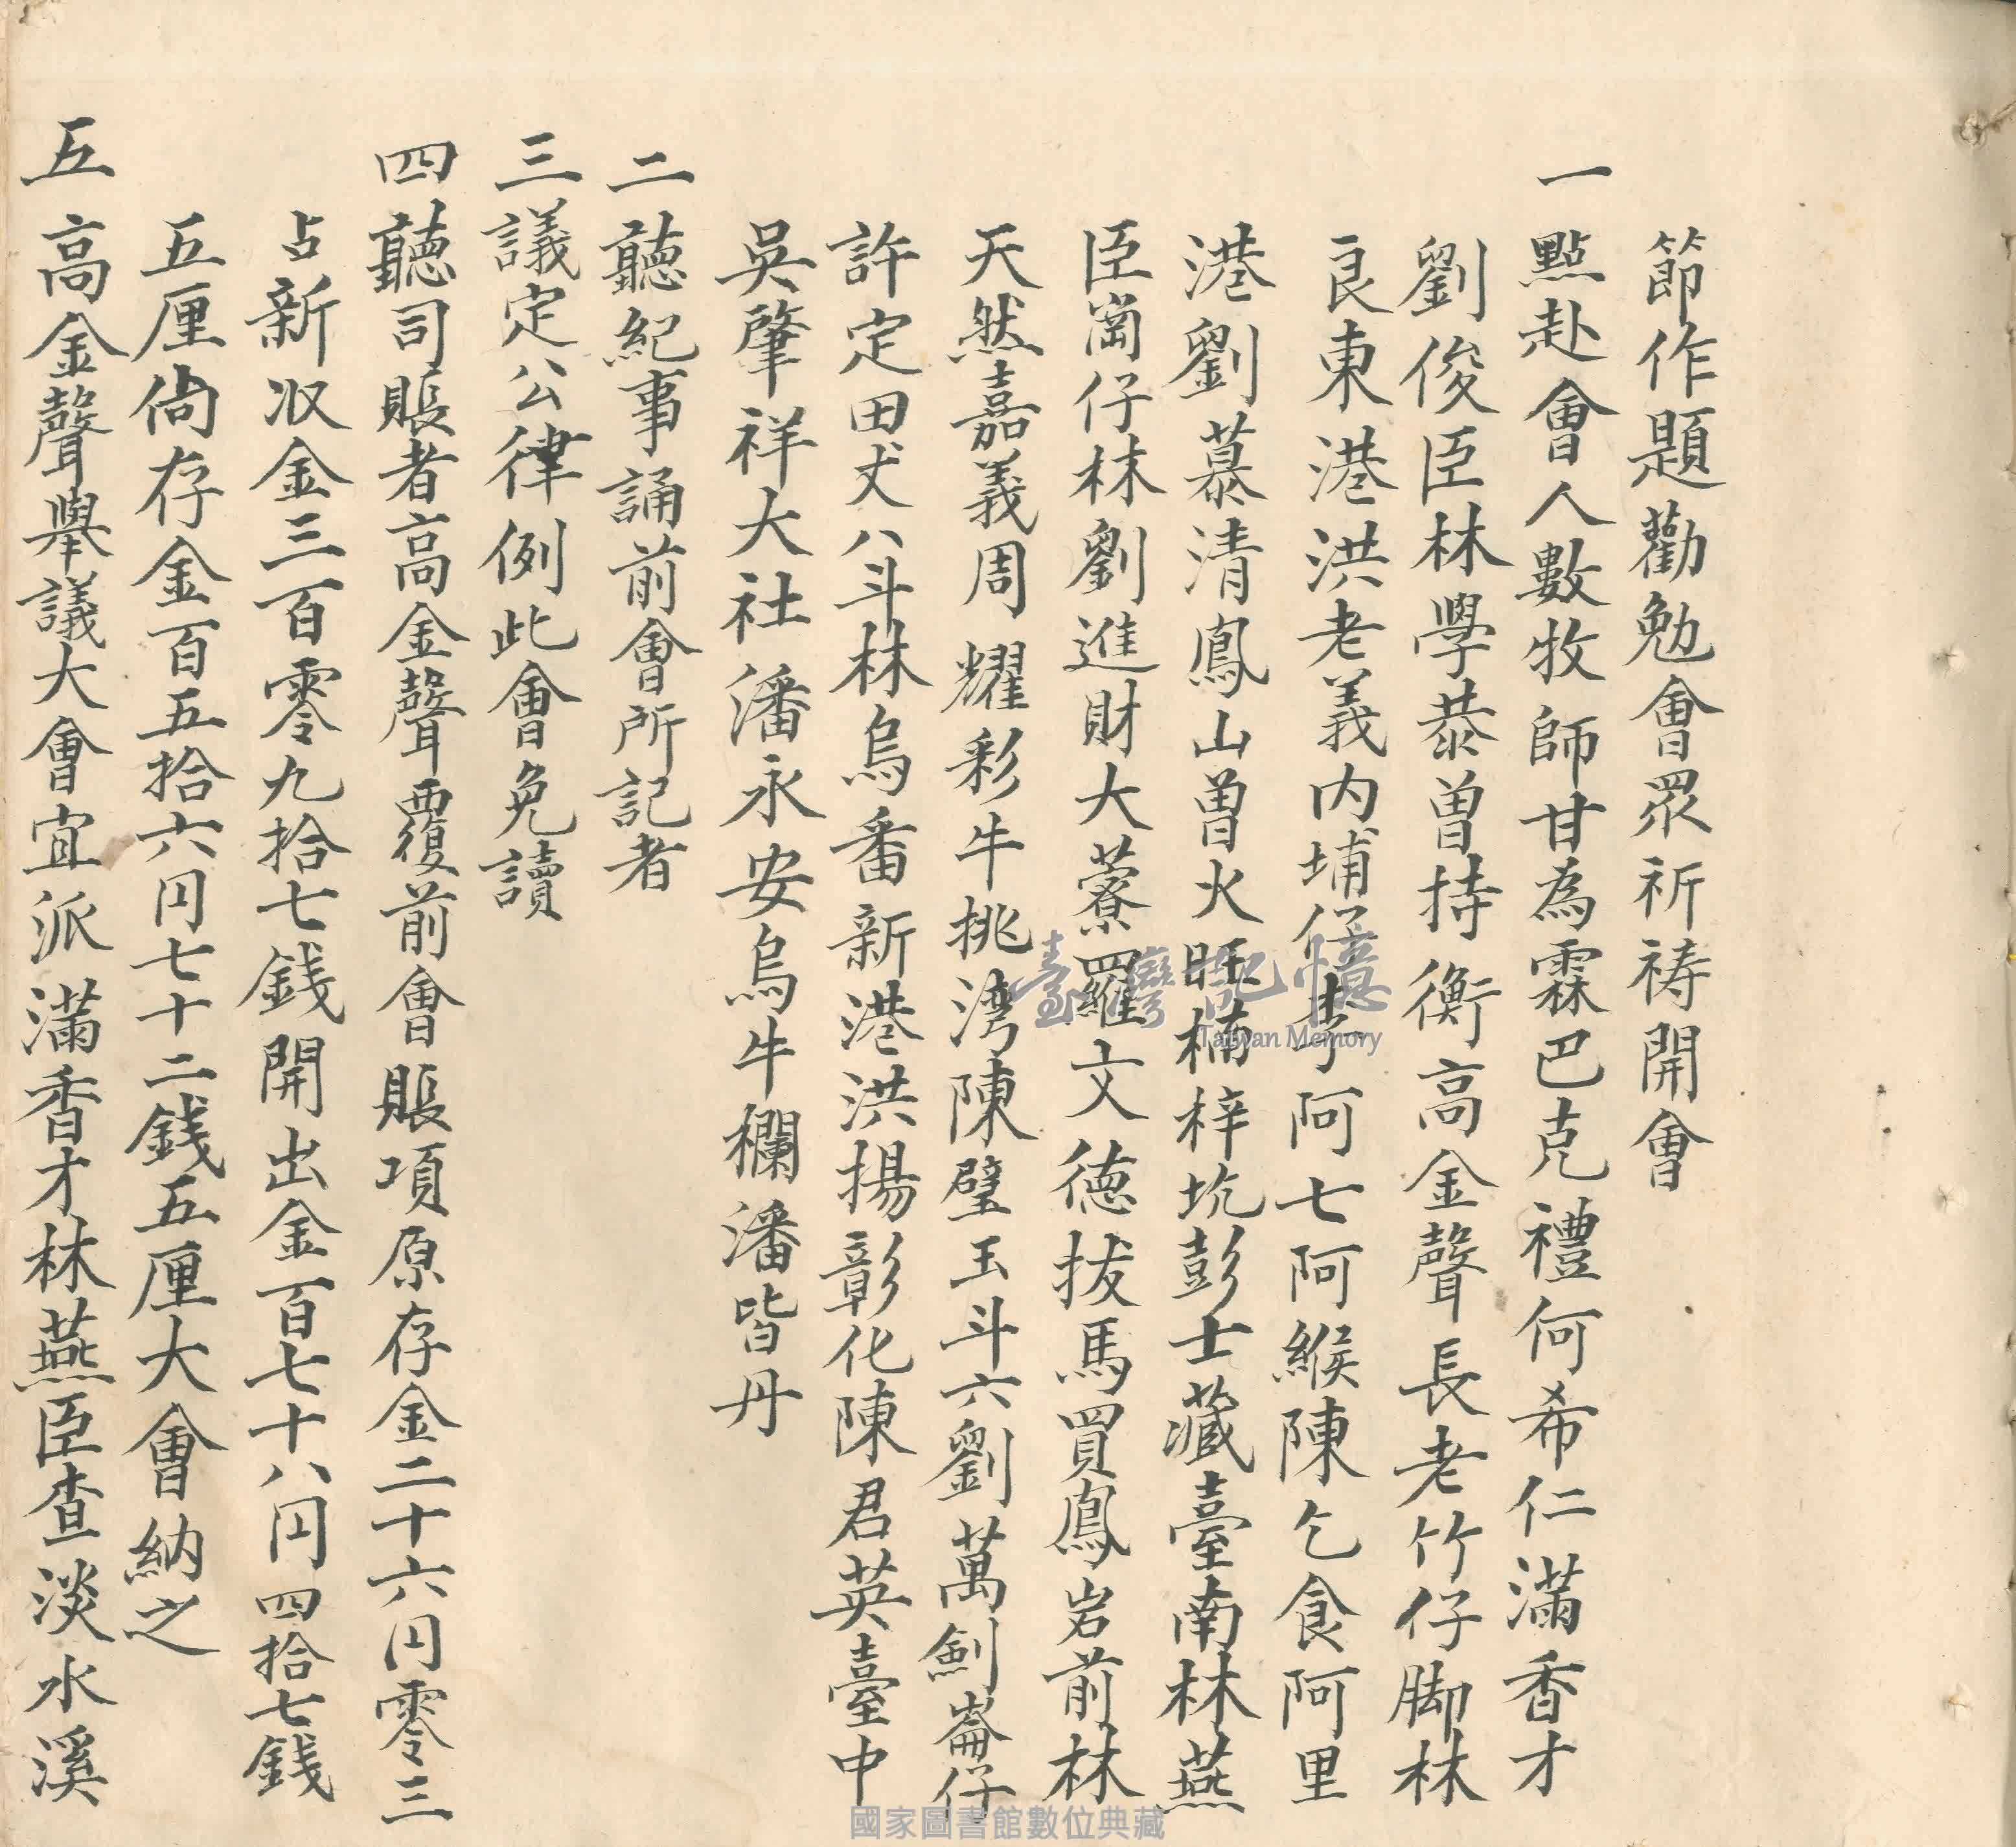 節作題勸勉會眾祈祷開會
一點赴會人數牧師甘為霖巴克禮何希仁滿香才
劉俊臣林學恭曾持衡高金聲長老竹仔脚林
良東港洪老義内埔仔李阿七阿緱陳乞食阿里
港劉慕清鳳山曾火旺楠梓坑彭士藏臺南林燕
臣崗仔林劉進財大藔羅文德拔馬買鳳岩前林
天然嘉義周耀彩牛挑湾陳璧玉斗六劉萬劍崙仔
許定田丈八斗林烏番新港洪揚彰化陳君英臺中
吳肇祥大社潘永安烏牛欄潘皆丹
二聽紀事誦前會所記者
三議定公律例此會免讀
四聽司賬者高金聲覆前會賬項原存金二十六円零三
占新収金三百零九拾七銭開出金百七十八円四拾七銭
五厘尚存金百五拾六円七十二銭五厘大會納之
五高金聲舉議大會宜派滿香才林燕臣查淡水溪
臺灣記憶
Taiwan Memory
國家圖書館數位典藏